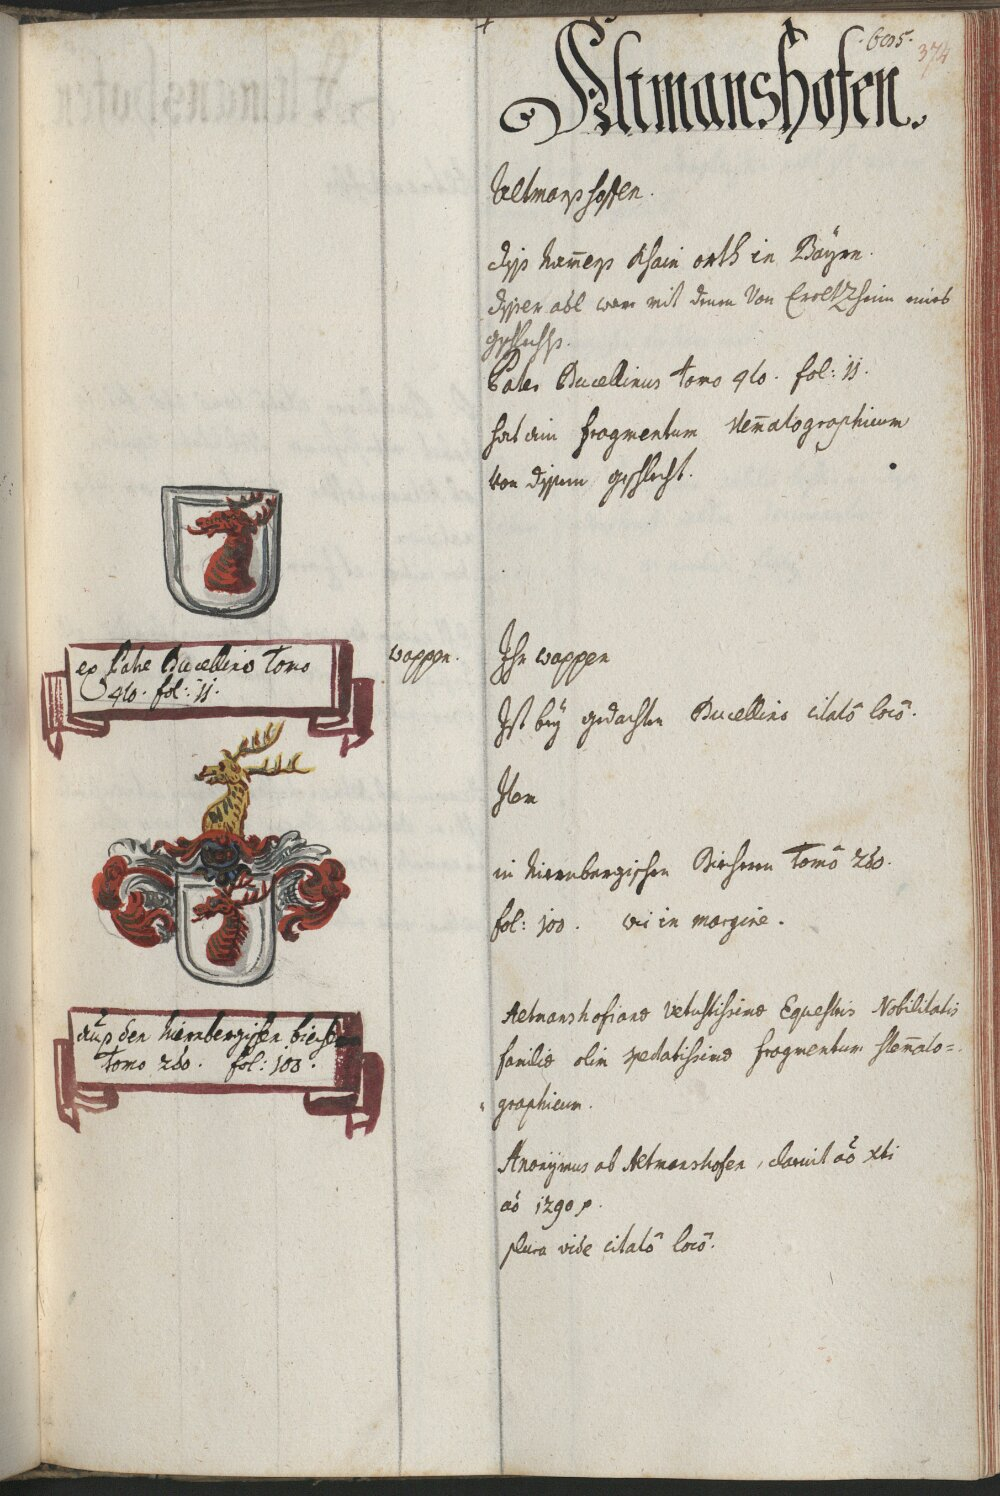 ·605·
374
Altmanshofen.
Altmanshoffen.
diss Namens khain orth in Bayrn.
disser adl war mit denen Von Erolzheim eines
geschlechts.
Pater Bucellinus tomo 4to. fol: 11.
hat ain fragmentum stem̄atographicum
von dissem geschlecht.
ex Patre Bucellino Tomo
4to. fol: 11.
wappen.
Ihr wappen
Ist bey gedachten Bucellino citato loco.
Item
in Nirnbergischen Biechern Tomo 2do.
fol: 100. wie in margine.
auss den Nirnbergischen biechern
Tomo 2do. fol: 100.
Altmanshofianae vetustissimae Equestris Nobilitatis
familiae olim spectatissimae fragmentum stem̄ato=
graphicum.
Anonymus ab Altmanshofen, claruit ao xti
ao 1290
plura vide citato loco.